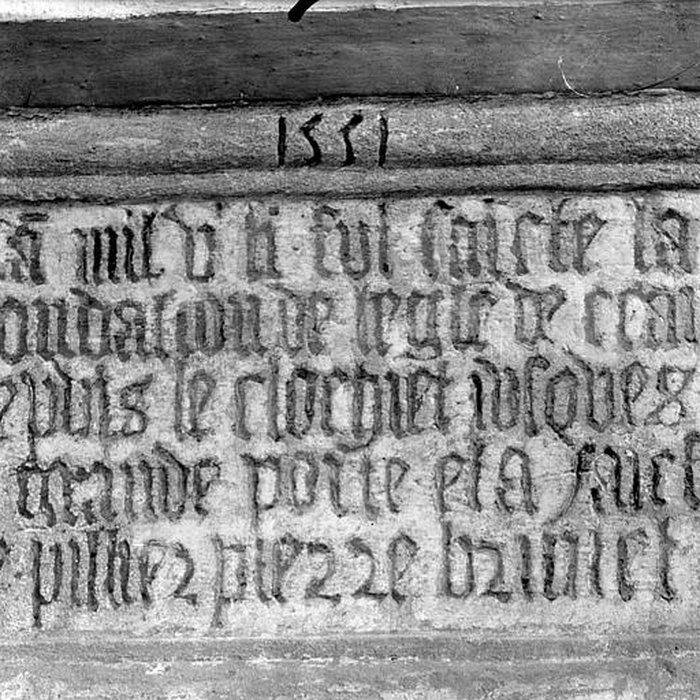 1551
lã mil vc li fut faicte la
fondation de leglise de cran
depuis le clochiet iusques
grande porte et a faict
pillier pierre bruniet